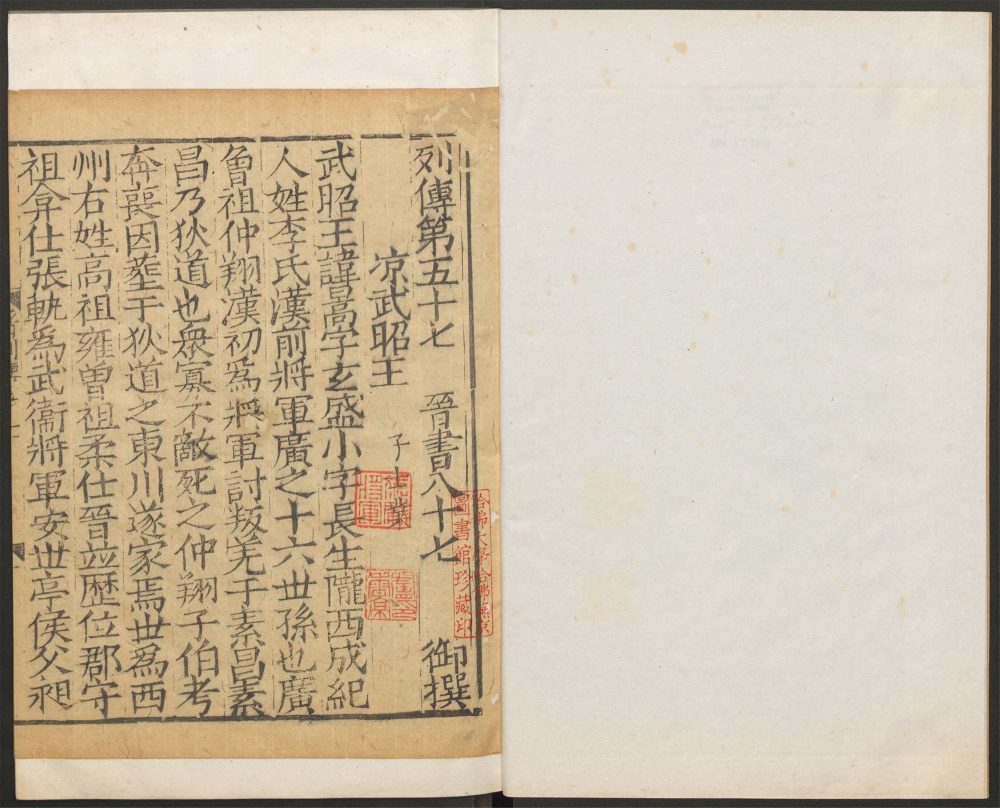 列傳第五十七 晉書八十七 御撰
涼武昭王 子士業
武昭王諱暠字玄盛小字長生隴西成紀
人姓李氏漢前將軍廣之十六世孫也廣
曾祖仲翔漢初爲將軍討叛羌于素昌素
昌乃狄道也衆寡不敵死之仲翔子伯考
奔喪因葬于狄道之東川遂家焉世爲西
州右姓高祖雍曾祖柔仕晉並歷位郡守
祖弇仕張軌爲武衞將軍安世亭侯父昶
哈佛大學哈佛燕京
圖書館珍藏印